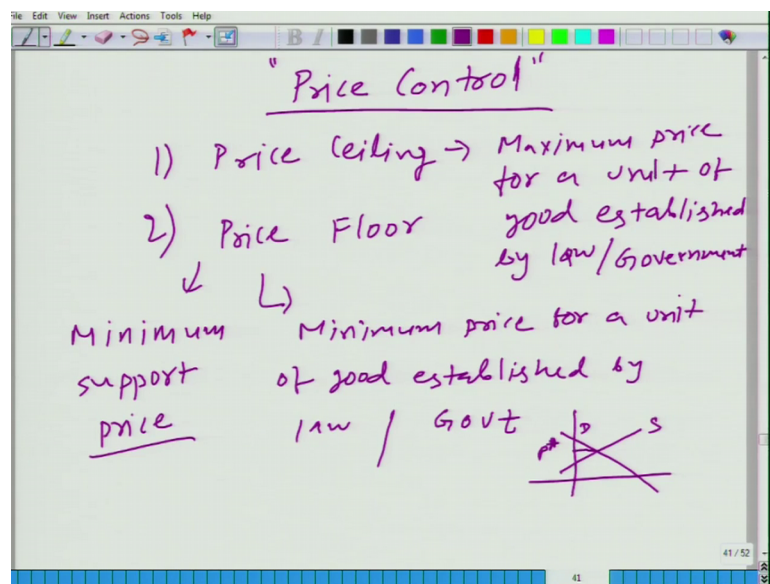 File Edit View Insert Actions Tools Help
B I
"Price Control"
1) Price Ceiling → Maximum price
for a unit of
good established
by law/Government
2) Price Floor
Minimum
support
price
Minimum price for a unit
of good established by
law / Govt
D
S
41 / 52
41